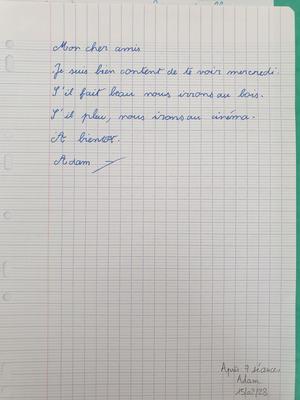 Mon cher amis
Je suis bien content de te voir mercredi.
S'il fait beau nous irrons au bois.
S'il pleu, nous irons au cinéma.
A bientot.
Adam
Après 7 séances
Adam